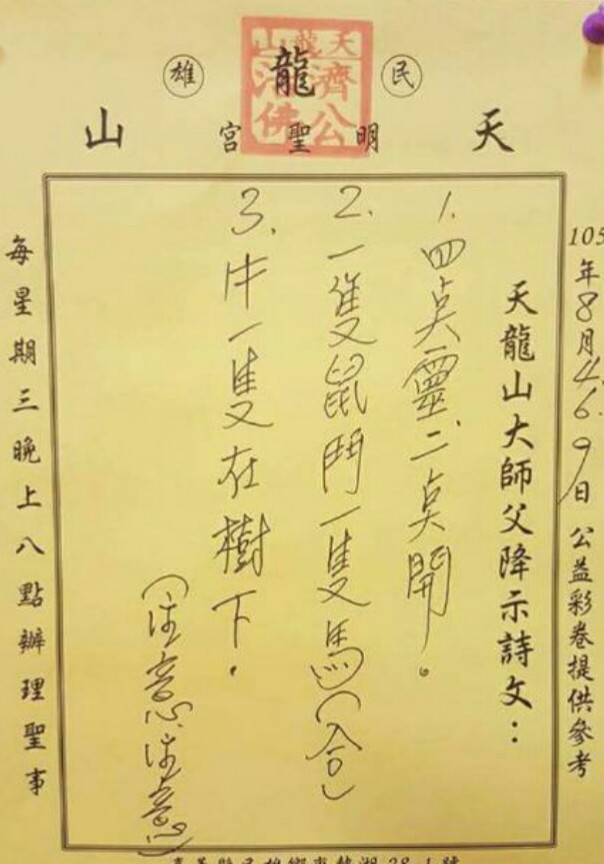 民龍雄
天山
明聖宮
天龍山
濟公
活佛
105年8月4.6.9日 公益彩卷提供參考
天龍山大師父降示詩文：
1. 四点靈、二点開。
2. 一隻鼠鬥一隻馬（合）
3. 牛一隻在樹下。
（注意注意）
每星期三晚上八點辦理聖事